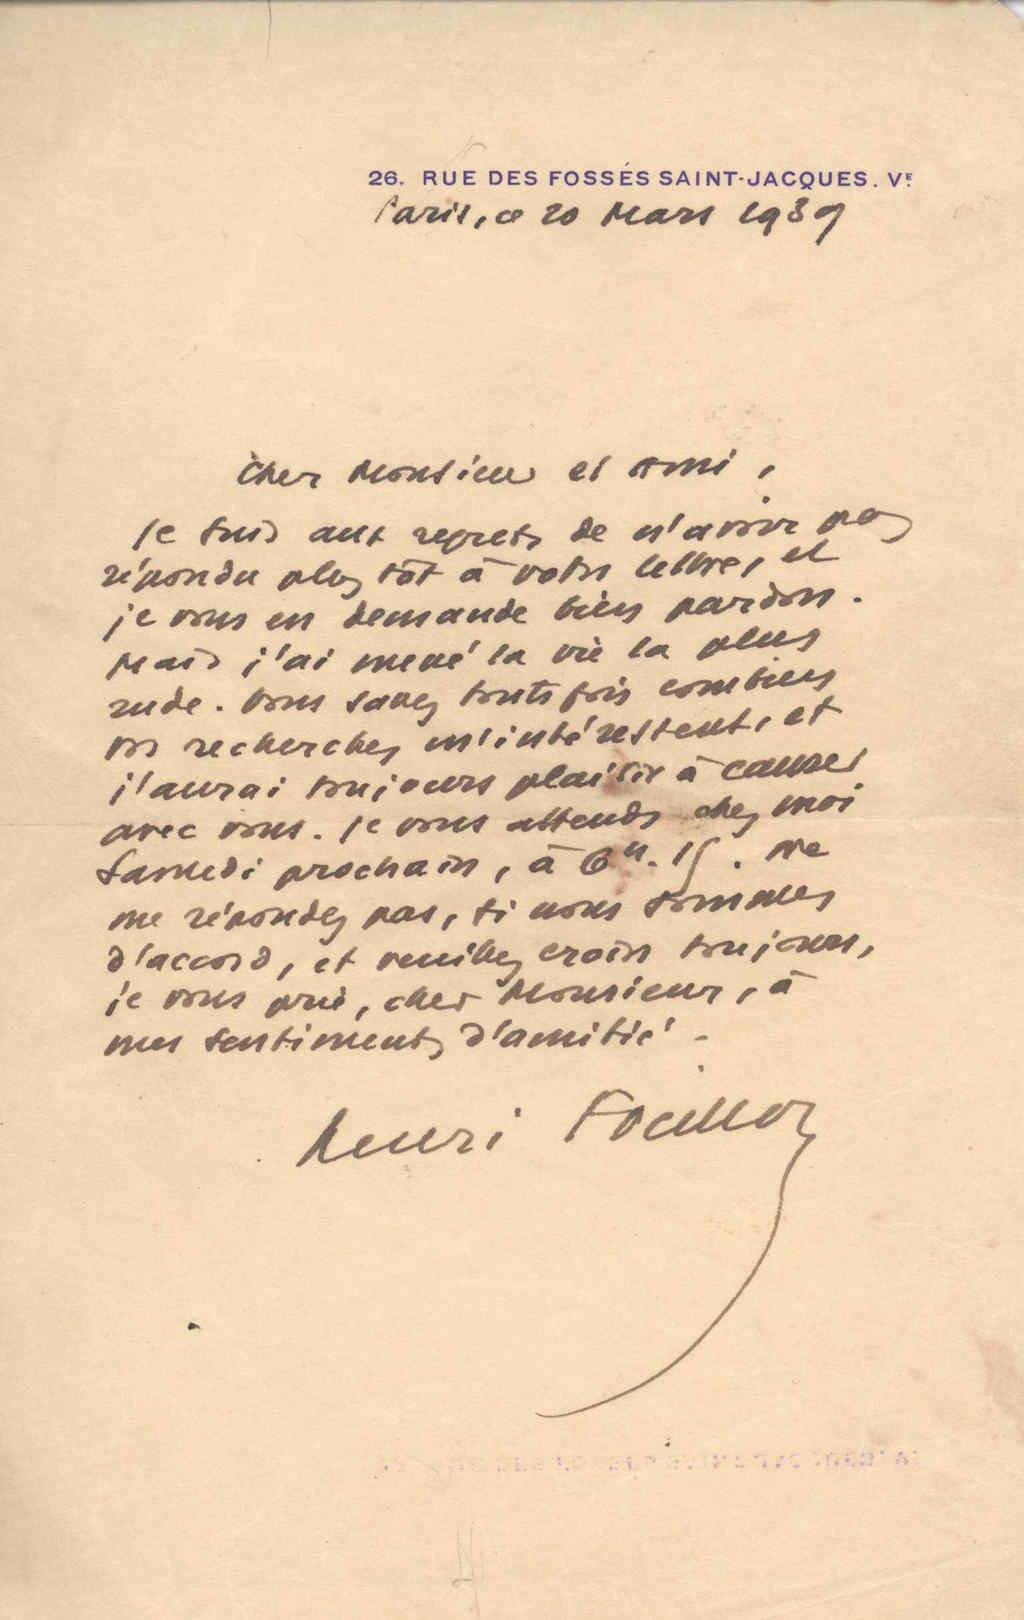 26. RUE DES FOSSÉS SAINT-JACQUES. Vᴱ
Paris, ce 20 Mars 1939
Cher Monsieur et ami,
Je suis aux regrets de n'avoir pas
répondu plus tôt à votre lettre, et
je vous en demande bien pardon.
Mais j'ai mené la vie la plus
rude. Vous savez toutefois combien
vos recherches m'intéressent, et
j'aurai toujours plaisir à causer
avec vous. Je vous attends chez moi
Samedi prochain, à 6ʰ. 15. Ne
me répondez pas, si nous sommes
d'accord, et veuillez croire toujours,
je vous prie, cher Monsieur, à
mes sentiments d'amitié.
Henri Focillon